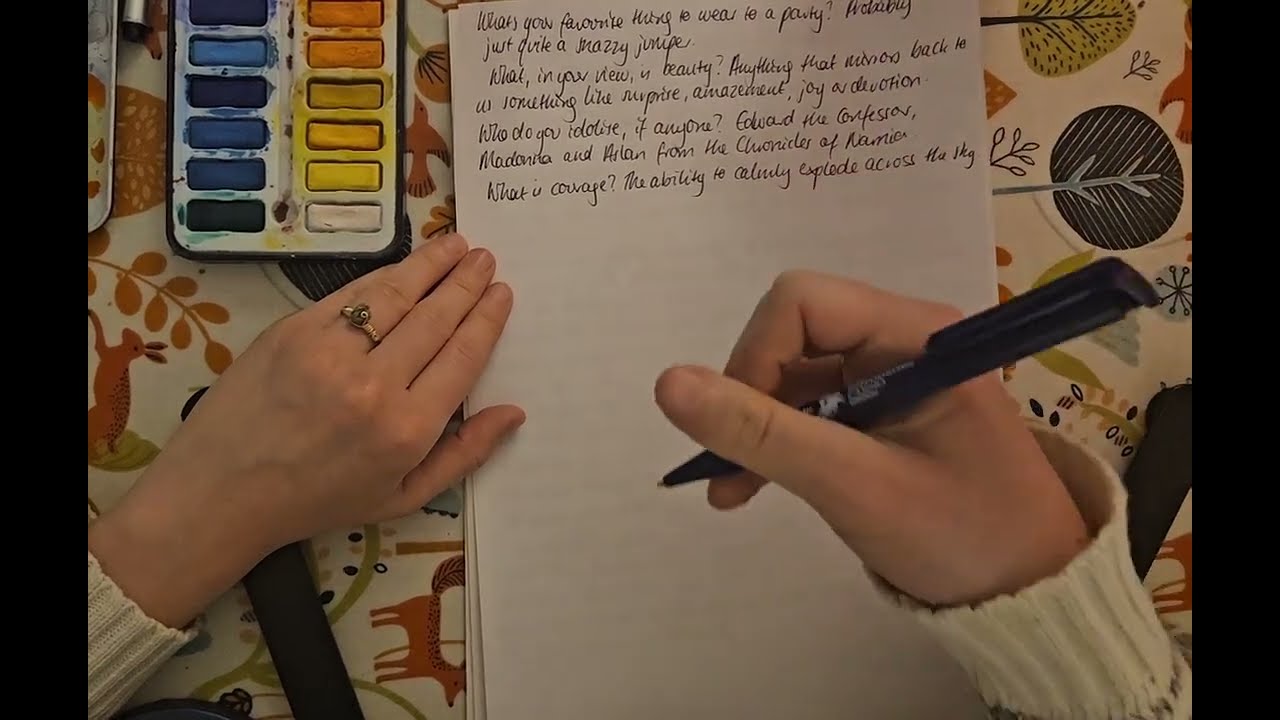 What's your favourite thing to wear to a party? Probably
just quite a snazzy jumper.
What, in your view, is beauty? Anything that mirrors back to
us something like surprise, amazement, joy or devotion.
Who do you idolise, if anyone? Edward the Confessor,
Madonna and Aslan from the Chronicles of Narnia.
What is courage? The ability to calmly explode across the sky